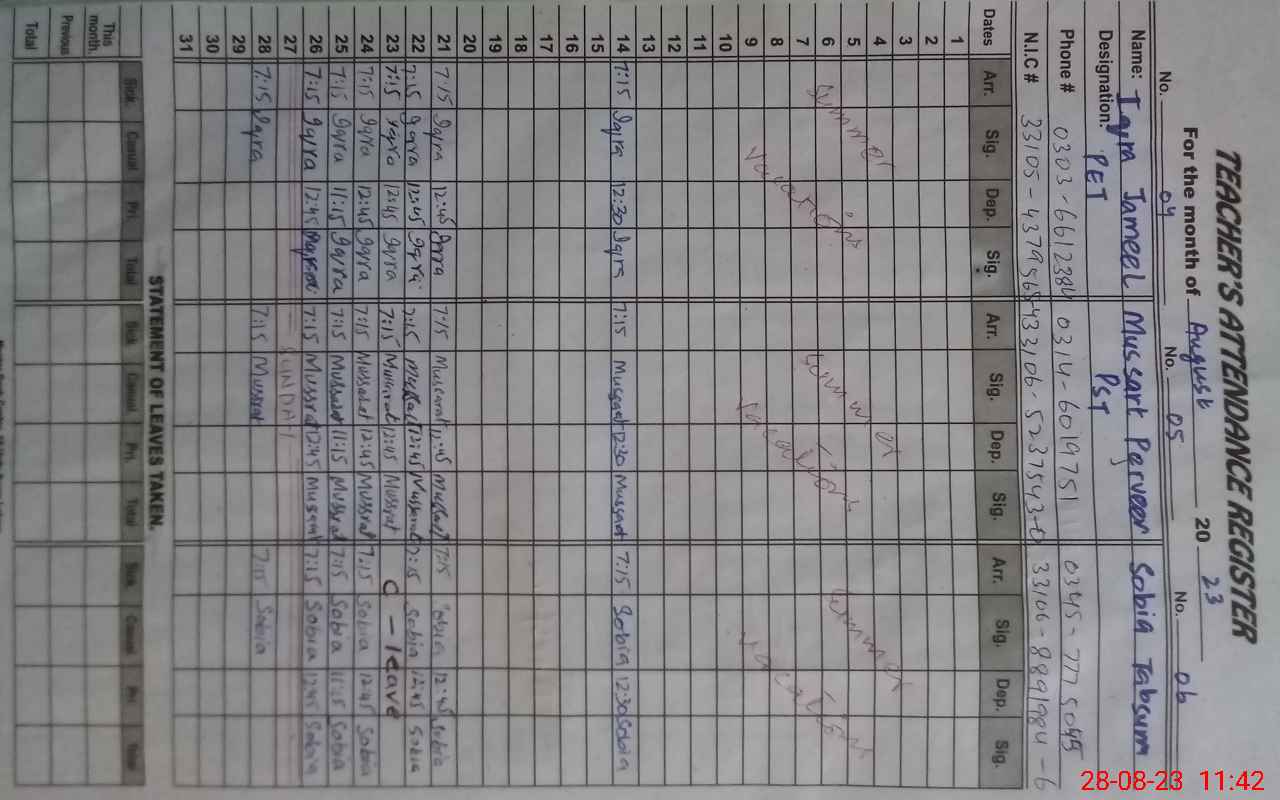 TEACHER'S ATTENDANCE REGISTER
For the month of August 20 23
No. 04 No. 05 No. 06
Name: Iqra Jameel Mussart Perveen Sobia Tabsum
Designation: PET PST
Phone # 0303-6612384 0314-6019751 0345-7775045
N.I.C #
Dates Arr. Sig. Dep. Sig. Arr. Sig. Dep. Sig. Arr. Sig. Dep. Sig.
1
2
3
4
5
6
7
8
9
Summer Vacations Summer Vacations Summer Vacations
10
11
12
13
14 7:15 Iqra 12:30 Iqra 7:15 Mussarat 12:30 Mussarat 7:15 Sobia 12:30 Sobia
15
16
17
18
19
20
21 7:15 Iqra 12:45 Iqra 7:15 Mussarat 12:45 Mussarat 7:15 Sobia 12:45 Sobia
22 7:15 Iqra 12:45 Iqra 7:15 Mussarat 12:45 Mussarat 7:15 Sobia 12:45 Sobia
23 7:15 Iqra 12:45 Iqra 7:15 Mussrat 12:45 Mussrat C - leave
24 7:15 Iqra 12:45 Iqra 7:15 Mussarat 12:45 Mussrat 7:15 Sobia 12:45 Sobia
25 7:15 Iqra 11:15 Iqra 7:15 Mussarat 11:15 Mussrat 7:15 Sobia 11:15 Sobia
26 7:15 Iqra 12:45 7:15 Mussrat 12:45 Mussrat 7:15 Sobia 12:45 Sobia
27 SUNDAY
28 7:15 Iqra 7:15 Mussrat 7:15 Sobia
29
30
31
STATEMENT OF LEAVES TAKEN.
Sick Casual Pri. Total Sick Casual Pri. Total Sick Casual Pri Total
This month.
Previous
Total
28-08-23 11:42